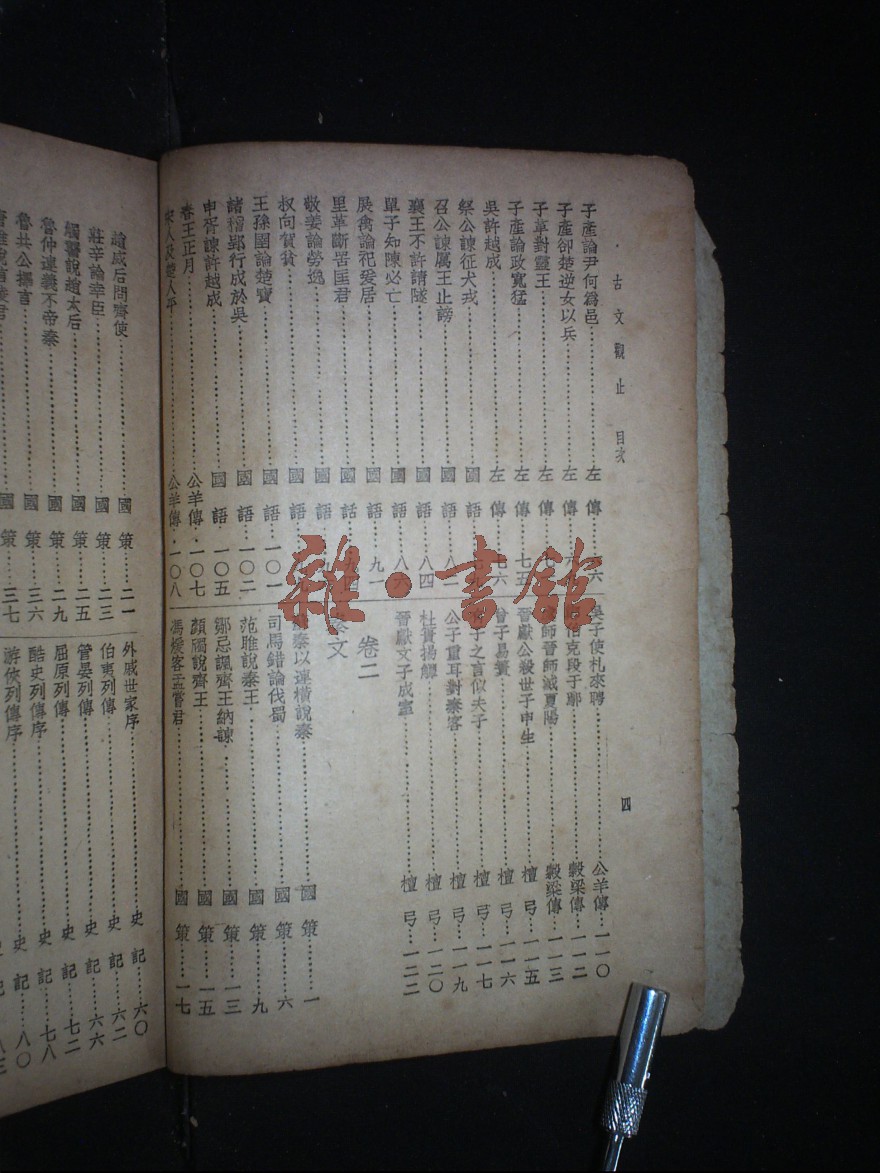 古文觀止 目次
四
子產論尹何爲邑……左傳……六
子產卻楚逆女以兵……左傳……六
子革對靈王……左傳……七
子產論政寬猛……左傳……七五
吳許越成……左傳……七六
祭公諫征犬戎……國語
召公諫厲王止謗……國語……八二
襄王不許請隧……國語……八四
單子知陳必亡……國語……八六
展禽論祀爰居……國語……九一
里革斷罟匡君……國語
敬姜論勞逸……國語
叔向賀貧……國語
王孫圉論楚寶……國語……一〇一
諸稽郢行成於吳……國語……一〇二
申胥諫許越成……國語……一〇五
春王正月……公羊傳……一〇七
宋人及楚人平……公羊傳……一〇八
吳子使札來聘……公羊傳……一一〇
伯克段于鄢……穀梁傳……一一二
師晉師滅夏陽……穀梁傳……一一三
晉獻公殺世子申生……檀弓……一一五
曾子易簀……檀弓……一一六
子之言似夫子……檀弓……一一七
公子重耳對秦客……檀弓……一一九
杜蕢揚觶……檀弓……一二〇
晉獻文子成室……檀弓……一二二
卷二
秦文
秦以連橫說秦……國策……一
司馬錯論伐蜀……國策……六
范雎說秦王……國策……九
鄒忌諷齊王納諫……國策……一三
顏斶說齊王……國策……一五
馮煖客孟嘗君……國策……一七
趙威后問齊使……國策……二一
莊辛論幸臣……國策……二三
觸讋說趙太后……國策……二五
魯仲連義不帝秦……國策……二九
魯共公擇言……國策……三六
唐雎說信陵君……國策……三七
外戚世家序……史記……六〇
伯夷列傳……史記……六二
管晏列傳……史記……六六
屈原列傳……史記……七二
酷史列傳序……史記……七八
游俠列傳序……史記……八〇
雜·書館